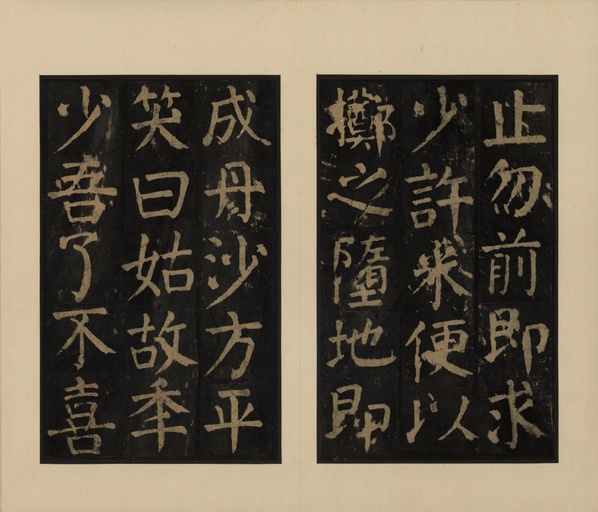 止勿前即求
少許米便以
擲之墮地即
成丹沙方平
笑曰姑故秊
少吾了不喜